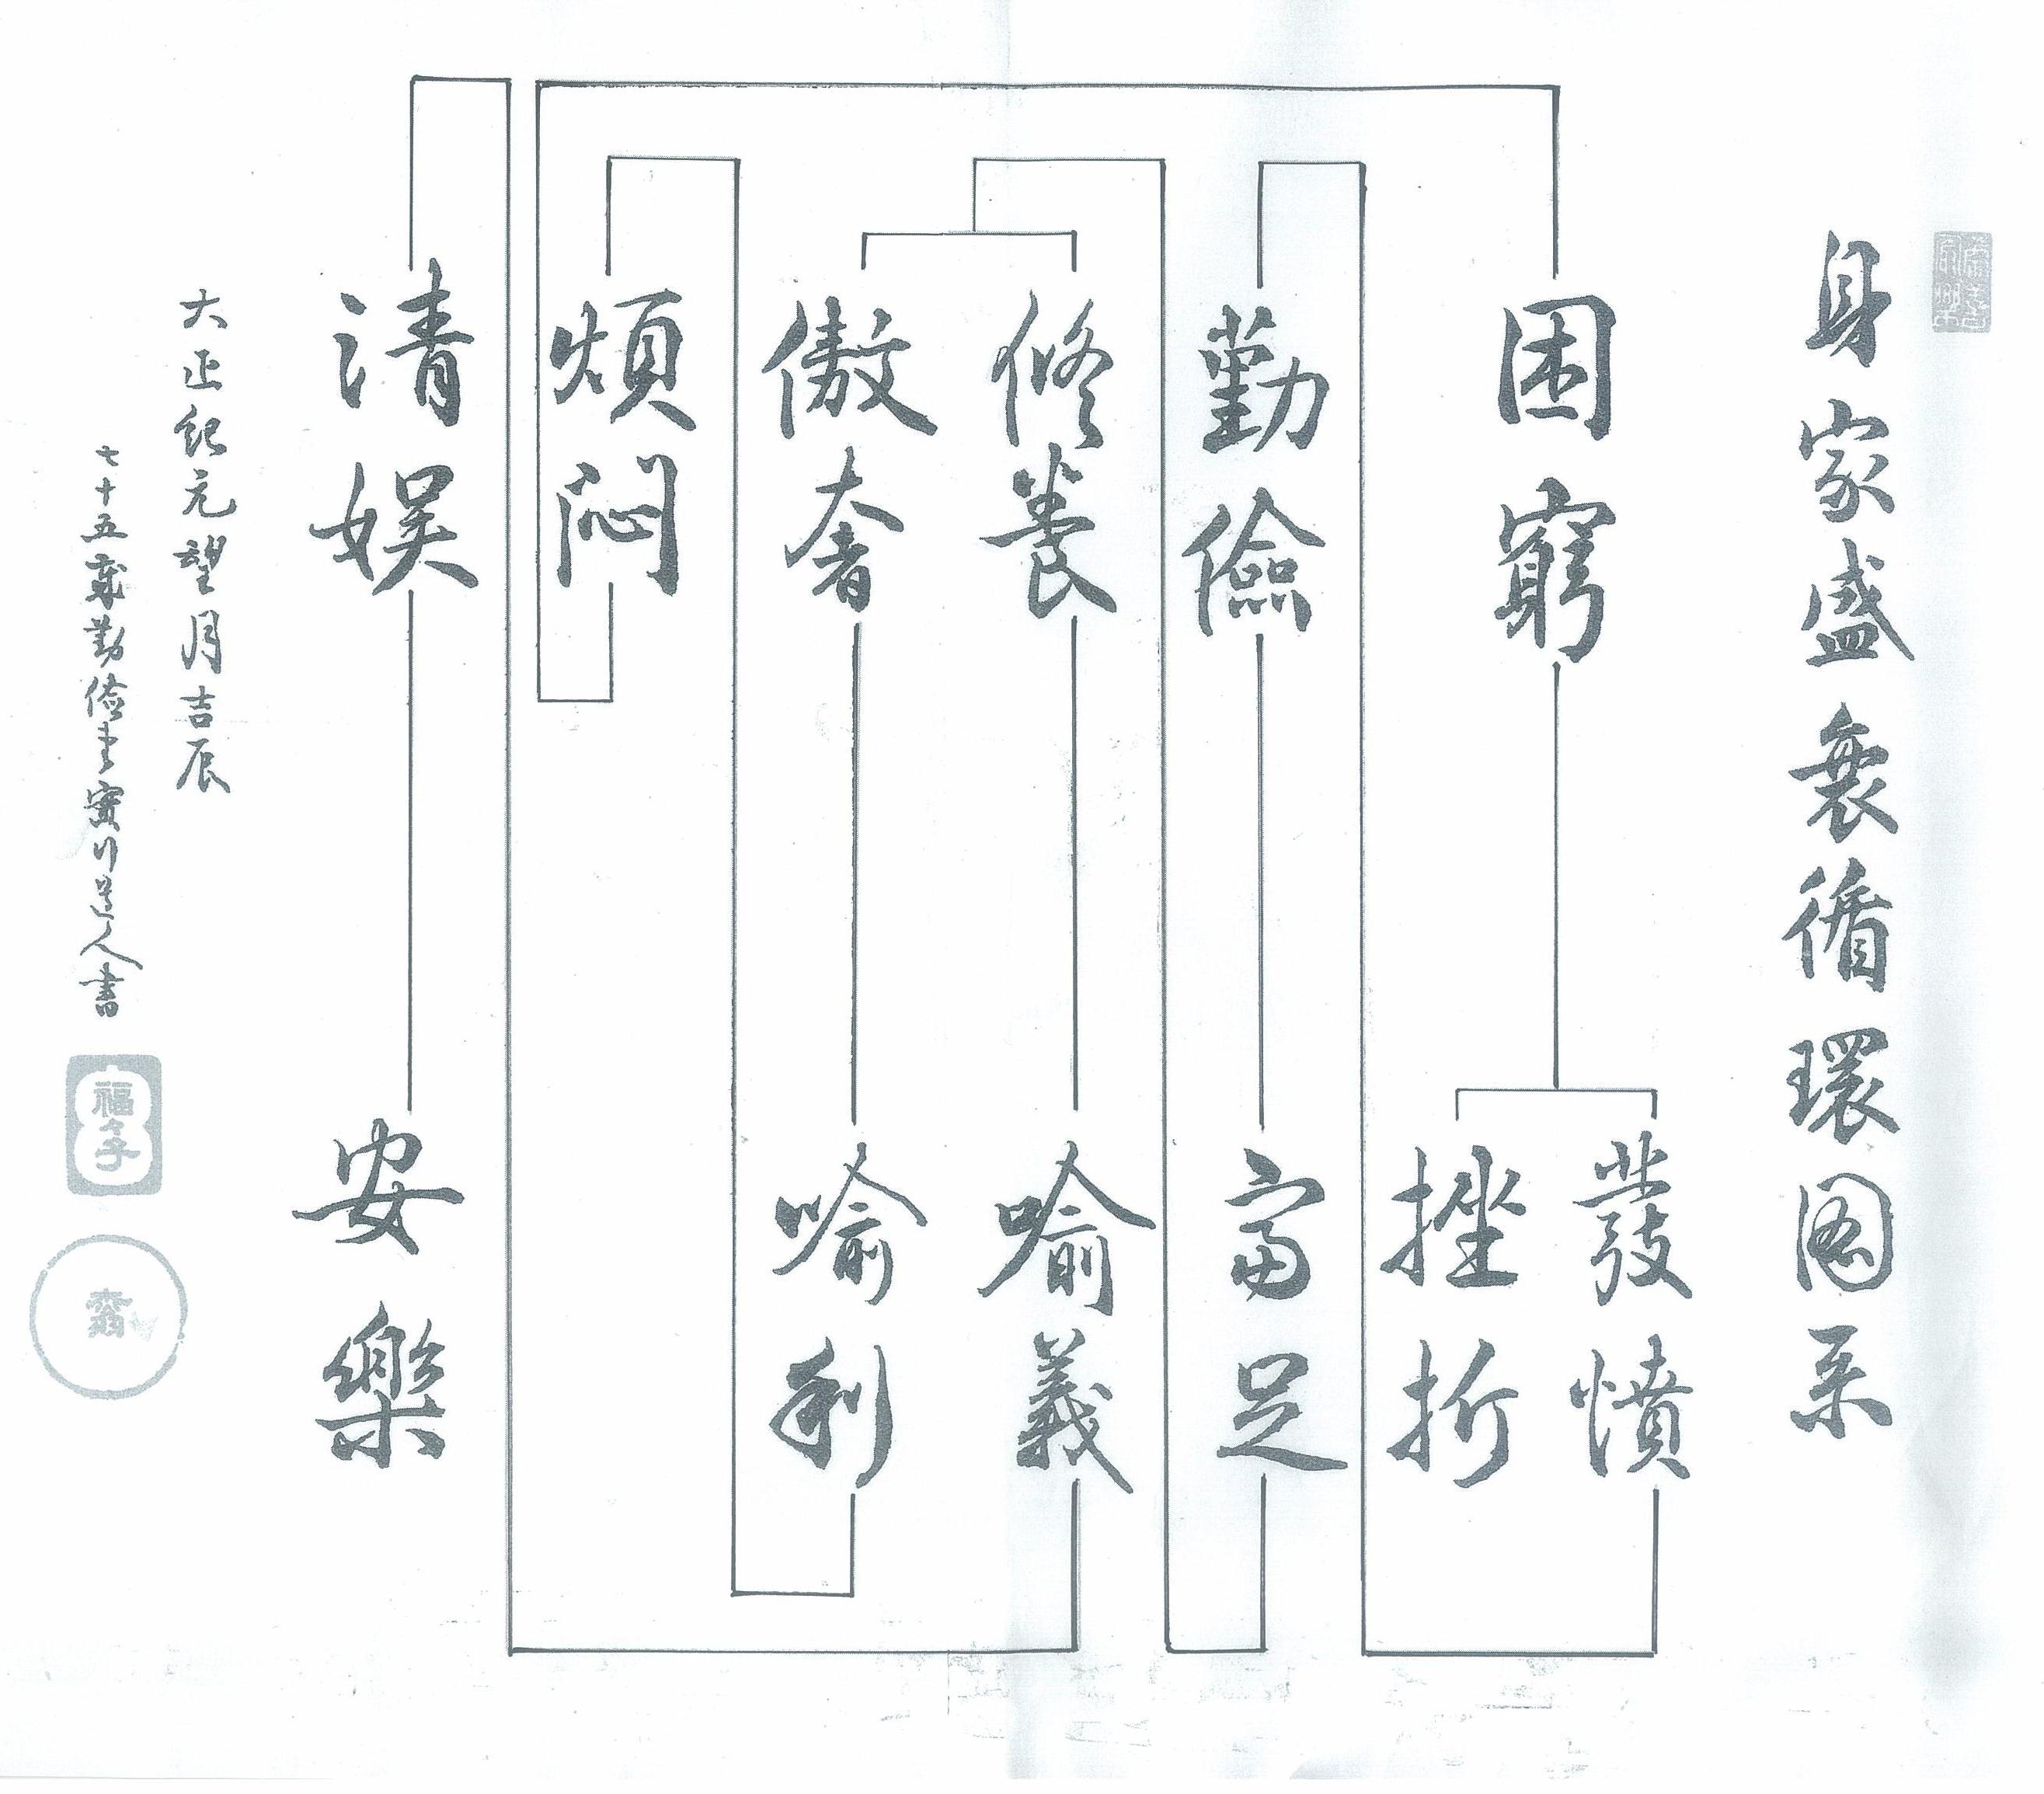 身家盛衰循環図系
困窮
發憤
挫折
勤儉
富足
修養
喻義
傲奢
喻利
煩悶
清娯
安樂
大正紀元望月吉辰
七十五叟勤儉堂實行道人書
福々子
翁